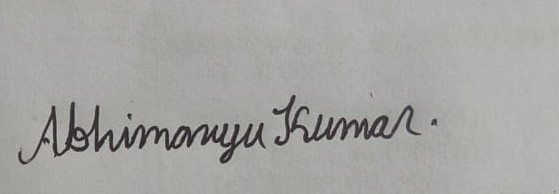 Abhimanyu Kumar.